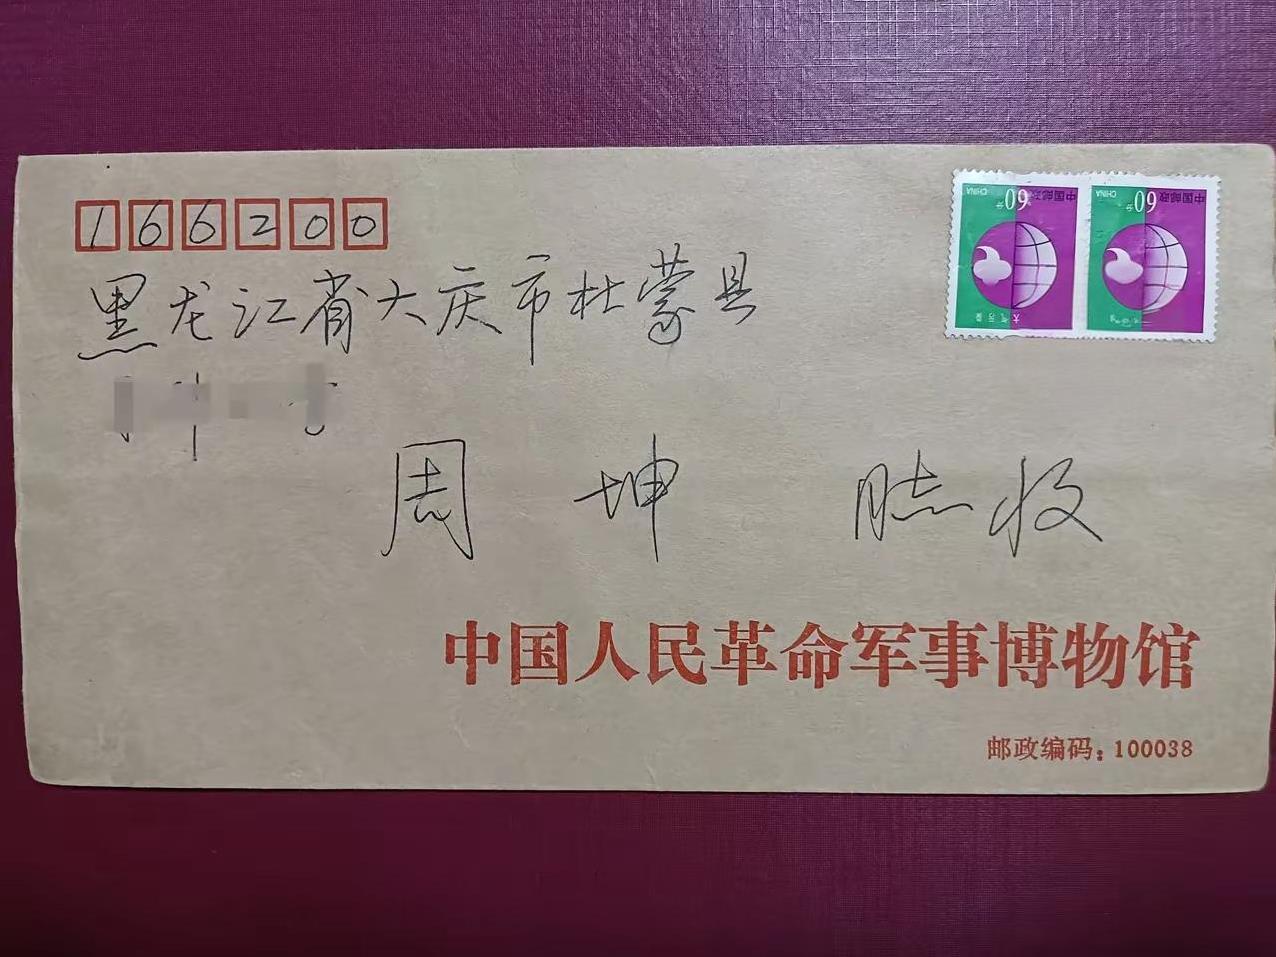 166200
黑龙江省大庆市杜蒙县
周坤 收
中国人民革命军事博物馆
邮政编码：100038
CHINA 60分 中国邮政
CHINA 60分 中国邮政
大气污染